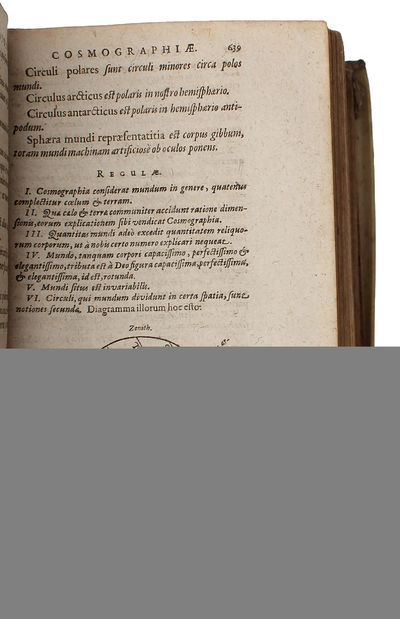 COSMOGRAPHIÆ. 639
Circuli polares sunt circuli minores circa polos
mundi.
Circulus arcticus est polaris in nostro hemisphærio.
Circulus antarcticus est polaris in hemisphærio anti-
podum.
Sphæra mundi repræsentatitia est corpus gibbum,
totam mundi machinam artificiosè ob oculos ponens.
REGULÆ.
I. Cosmographia considerat mundum in genere, quatenus
complectitur cælum & terram.
II. Quæ cælo & terræ communiter accidunt ratione dimen-
sionis, eorum explicationem sibi vendicat Cosmographia.
III. Quantitas mundi adeò excedit quantitatem reliquo-
rum corporum, ut à nobis certo numero explicari nequeat.
IV. Mundo, tanquam corpori capacissimo, perfectissimo &
elegantissimo, tributa est à Deo figura capacissima, perfectissima,
& elegantissima, id est, rotunda.
V. Mundi situs est invariabilis.
VI. Circuli, qui mundum dividunt in certa spatia, sunt
notiones secundæ. Diagramma illorum hoc esto:
Zenith.